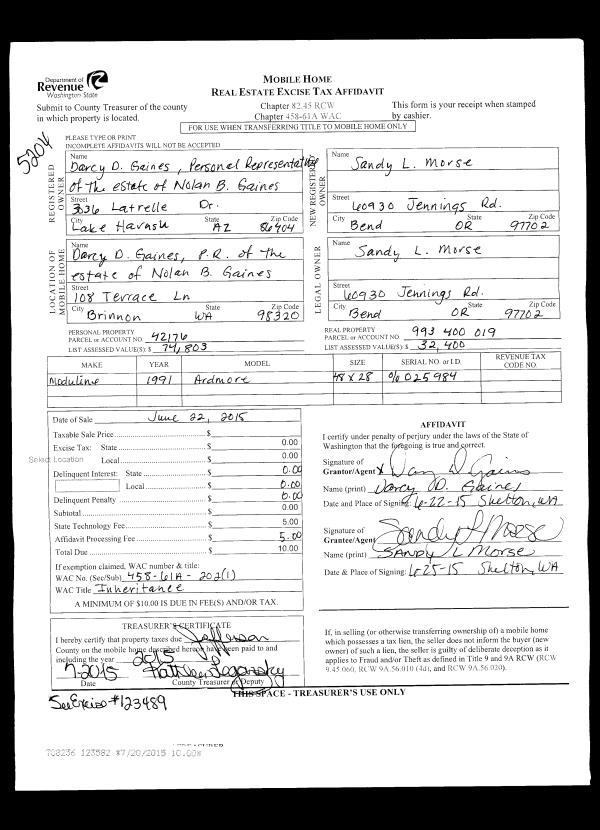 Department of
Revenue
Washington State
MOBILE HOME
REAL ESTATE EXCISE TAX AFFIDAVIT
Submit to County Treasurer of the county
in which property is located.
Chapter 82.45 RCW
Chapter 458-61A WAC
This form is your receipt when stamped
by cashier.
FOR USE WHEN TRANSFERRING TITLE TO MOBILE HOME ONLY
5204
PLEASE TYPE OR PRINT
INCOMPLETE AFFIDAVITS WILL NOT BE ACCEPTED
REGISTERED OWNER
Name
Darcy D. Gaines, Personal Representative
of the estate of Nolan B. Gaines
Street
3036 Latrelle Dr.
City State Zip Code
Lake Havasu AZ 86404
NEW REGISTERED OWNER
Name
Sandy L. Morse
Street
60930 Jennings Rd.
City State Zip Code
Bend OR 97702
LOCATION OF MOBILE HOME
Name
Darcy D. Gaines, P.R. of the
estate of Nolan B. Gaines
Street
108 Terrace Ln
City State Zip Code
Brinnon WA 98320
LEGAL OWNER
Name
Sandy L. Morse
Street
60930 Jennings Rd.
City State Zip Code
Bend OR 97702
PERSONAL PROPERTY
PARCEL or ACCOUNT NO. 42176
LIST ASSESSED VALUE(S): $ 74,803
REAL PROPERTY
PARCEL or ACCOUNT NO. 993 400 019
LIST ASSESSED VALUE(S): $ 32,400
MAKE YEAR MODEL SIZE SERIAL NO. or I.D. REVENUE TAX CODE NO.
Moduline 1991 Ardmore 48 x 28 025984
Date of Sale June 22, 2015
Taxable Sale Price $
Excise Tax: State $ 0.00
Select Location
Local $ 0.00
Delinquent Interest: State $ 0.00
Local $ 0.00
Delinquent Penalty $ 0.00
Subtotal $ 0.00
State Technology Fee $ 5.00
Affidavit Processing Fee $ 5.00
Total Due $ 10.00
If exemption claimed, WAC number & title:
WAC No. (Sec/Sub) 458-61A-202(1)
WAC Title Inheritance
A MINIMUM OF $10.00 IS DUE IN FEE(S) AND/OR TAX.
AFFIDAVIT
I certify under penalty of perjury under the laws of the State of
Washington that the foregoing is true and correct.
Signature of
Grantor/Agent X
Name (print) Darcy D. Gaines
Date and Place of Signing: 6-22-15 Shelton, WA
Signature of
Grantee/Agent Sandy L Morse
Name (print) SANDY L MORSE
Date & Place of Signing: 6-25-15 Shelton, WA
TREASURER'S CERTIFICATE
I hereby certify that property taxes due Jefferson
County on the mobile home described hereon have been paid to and
including the year 2015
7-2015
Date County Treasurer or Deputy
If, in selling (or otherwise transferring ownership of) a mobile home
which possesses a tax lien, the seller does not inform the buyer (new
owner) of such a lien, the seller is guilty of deliberate deception as it
applies to Fraud and/or Theft as defined in Title 9 and 9A RCW (RCW
9.45.060, RCW 9A.56.010 (4d), and RCW 9A.56.020).
THIS SPACE - TREASURER'S USE ONLY
See Excise #123489
TREASURER
708236 123582 #7/20/2015 10.00#